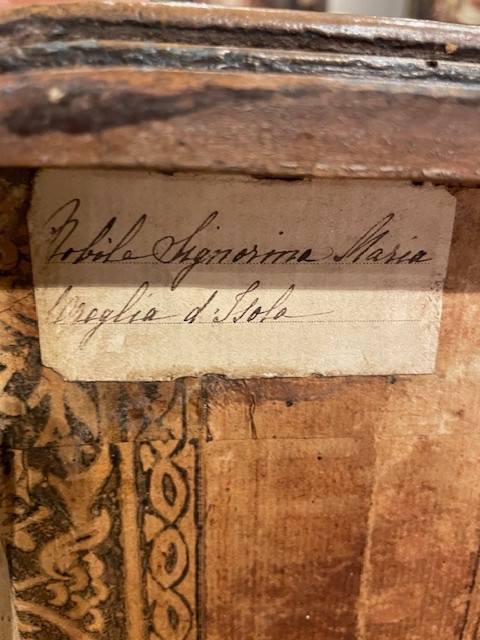 Nobile Signorina Maria
Oreglia d'Isola